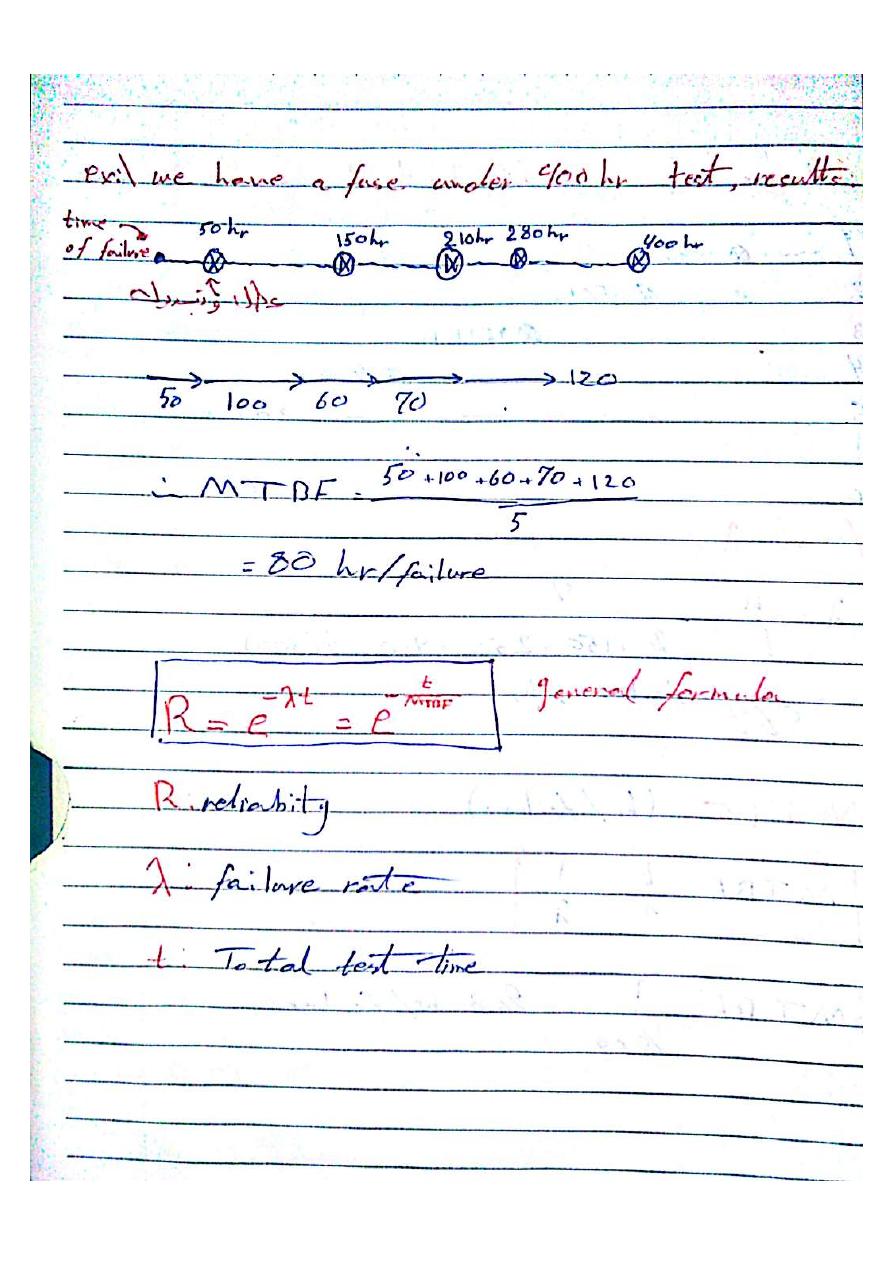 ex:1 we have a fuse under 400 hr test, results:
time of failure 50hr 150hr 210hr 280hr 400hr
50 100 60 70 120
∴ MTBF = (50+100+60+70+120)/5
= 80 hr/failure
R = e^(-λt) = e^(-t/MTBF) general formula
R: reliabity
λ: failure rate
t: Total test time